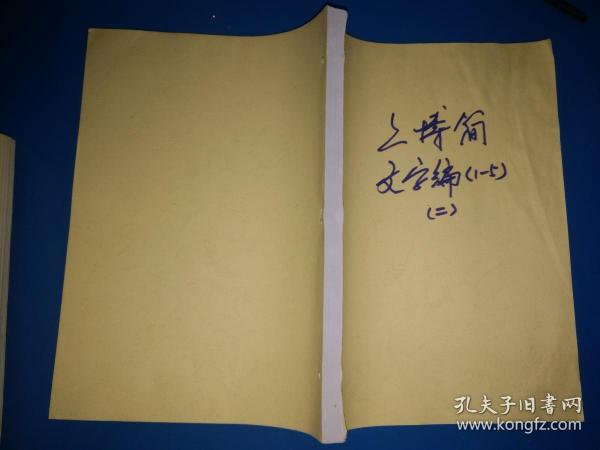 上博简
文字编(1-5)
(二)
孔夫子旧书网
www.kongfz.com